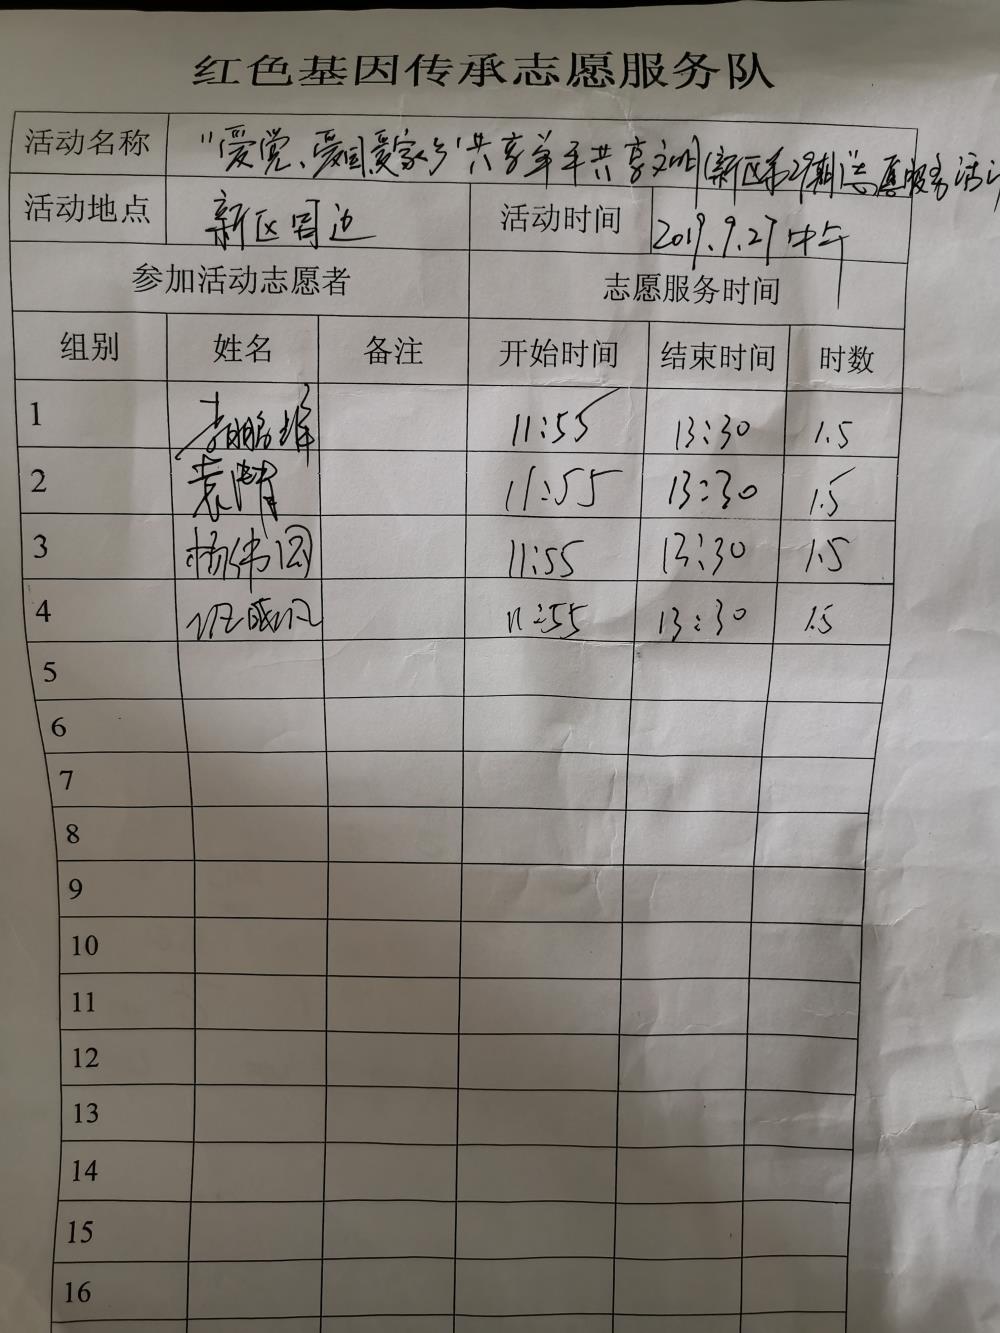 红色基因传承志愿服务队
活动名称 "爱党、爱国爱家乡"共享单车共享文明(新区第29期)志愿服务活动
活动地点 新区周边 活动时间 2019.9.27中午
参加活动志愿者 志愿服务时间
组别 姓名 备注 开始时间 结束时间 时数
1 李鹏 11:55 13:30 1.5
2 袁清 11:55 13:30 1.5
3 杨伟 11:55 13:30 1.5
4 11:55 13:30 1.5
5
6
7
8
9
10
11
12
13
14
15
16